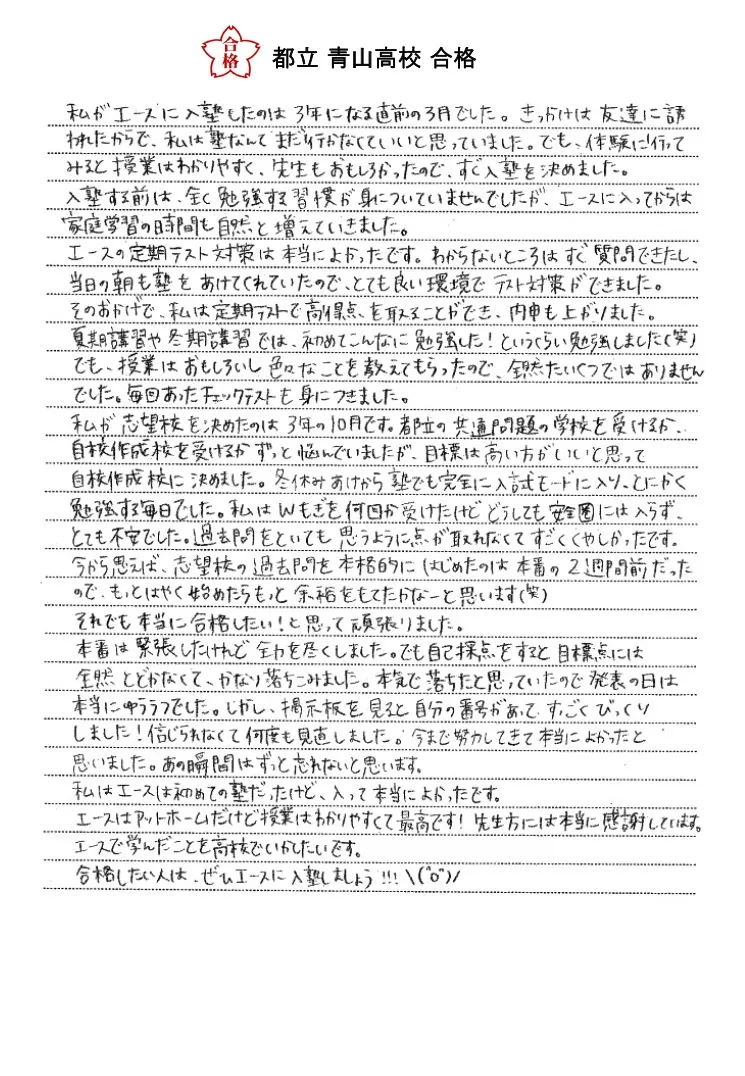 合格
都立 青山高校 合格
私がエースに入塾したのは3年になる直前の3月でした。きっかけは友達に誘
われたからで、私は塾なんてまだ行かなくていいと思っていました。でも、体験に行って
みると授業はわかりやすく、先生もおもしろかったので、すぐ入塾を決めました。
入塾する前は、全く勉強する習慣が身についていませんでしたが、エースに入ってからは
家庭学習の時間も自然と増えていきました。
エースの定期テスト対策は本当によかったです。わからないところはすぐ質問できたし、
当日の朝も塾をあけてくれていたので、とても良い環境でテスト対策ができました。
そのおかげで、私は定期テストで高得点を取ることができ、内申も上がりました。
夏期講習や冬期講習では、初めてこんなに勉強した!というくらい勉強しました(笑)
でも、授業はおもしろいし色々なことを教えてもらったので、全然たいくつではありません
でした。毎回あったチェックテストも身につきました。
私が志望校を決めたのは3年の10月です。都立の共通問題の学校を受けるか、
自校作成校を受けるかずっと悩んでいましたが、目標は高い方がいいと思って
自校作成校に決めました。冬休みあけから塾でも完全に入試モードに入り、とにかく
勉強する毎日でした。私はWもぎを何回か受けたけどどうしても安全圏には入らず、
とても不安でした。過去問をといても思うように点が取れなくてすごくくやしかったです。
今から思えば、志望校の過去問を本格的にはじめたのは本番の2週間前だった
ので、もっとはやく始めたらもっと余裕をもてたかなーと思います(笑)
それでも本当に合格したい!と思って頑張りました。
本番は緊張したけれど全力を尽くしました。でも自己採点をすると目標点には
全然とどかなくて、かなり落ちこみました。本気で落ちたと思っていたので発表の日は
本当にゆううつでした。しかし、掲示板を見ると自分の番号があって、すっごくびっくり
しました!信じられなくて何度も見直しました。今まで努力してきて本当によかったと
思いました。あの瞬間はずっと忘れないと思います。
私はエースは初めての塾だったけど、入って本当によかったです。
エースはアットホームだけど授業はわかりやすくて最高です!先生方には本当に感謝しています。
エースで学んだことを高校でいかしたいです。
合格したい人は、ぜひエースに入塾しましょう!!!\(^o^)/